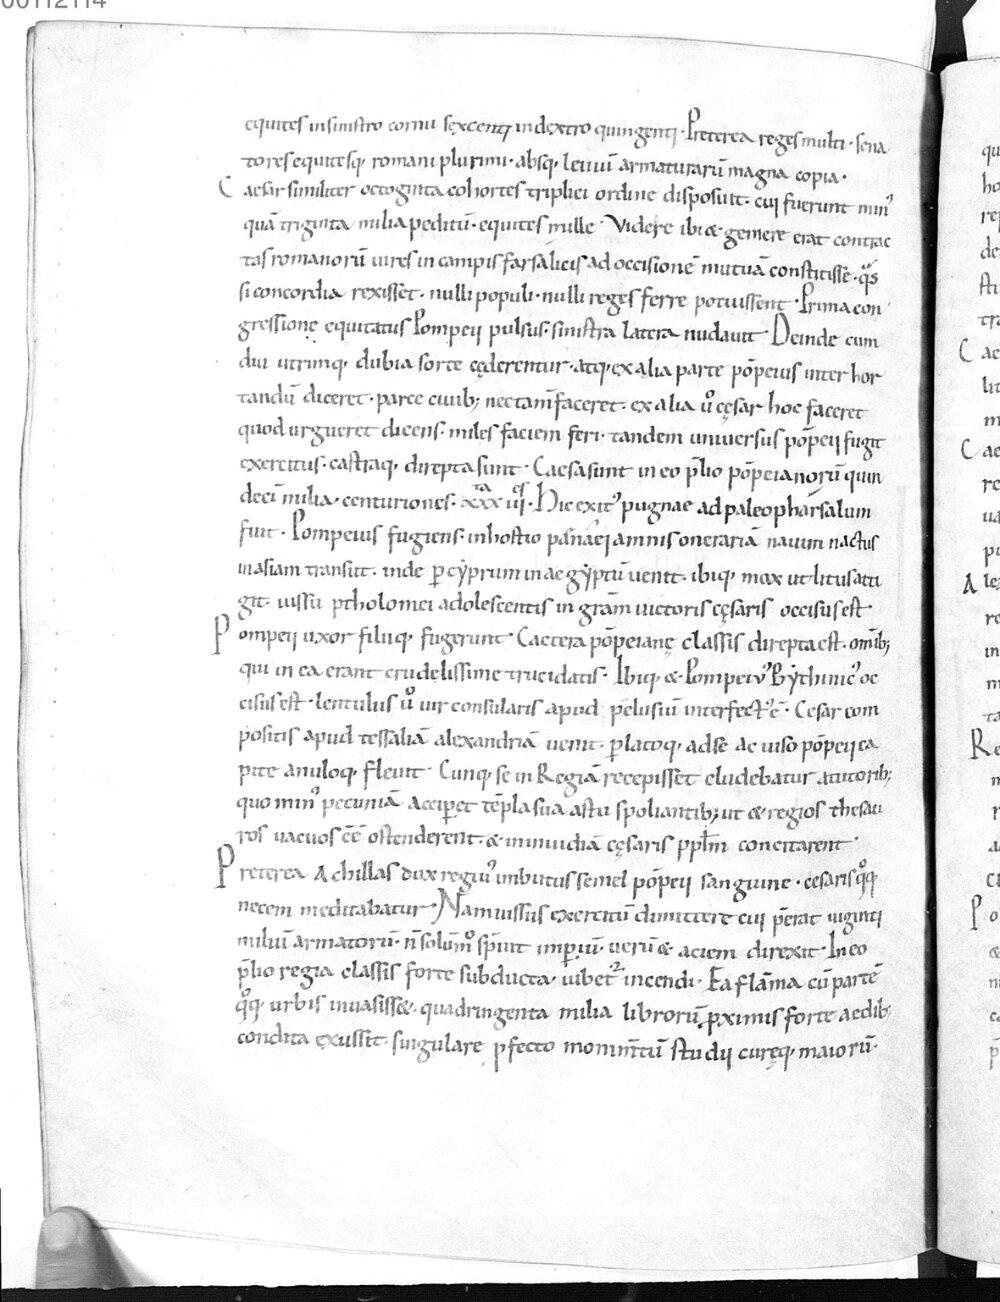 00112114
equites insinistro cornu sexcenti indextro quingenti · Preterea reges multi · sena
tores equitesq; romani plurimi · absq; leuiū armaturarū magna copia ·
Caesar similiter octoginta cohortes triplici ordine disposuit · cui fuerunt min᾿
quā triginta milia peditū · equites mille · Videre ibi & gemere erat contrac
tas romanorū uires in campis farsalicis ad occisionē mutuā constitisse · qͣs
si concordia rexisset · nulli populi · nulli reges ferre potuissent · Prima con
gressione equitatus Pompeii pulsus · sinistra latera nudauit · Deinde cum
diu utrinq; dubia sorte cęderentur · atq; ex alia parte pōpeius inter hor
tandū diceret · parce ciuib; nec tam̄ faceret · ex alia ū̊ cęsar hoc faceret
quod urgueret dicens · miles faciem feri · tandem uniuersus pōpeii fugit
exercitus · castraq; direpta sunt · Caesa sunt in eo p̄lio pōpeianorū quin
decī milia · centuriones · xxxta iiios · Hic exit᾿ pugnae ad paleopharsalum
fuit · Pompeius fugiens · in hostio penaei amnis onerariā nauim nactus
in asiam transiit · inde p̱ cẏprum in aegẏptū uenit · ibiq; mox ut litus atti
git · iussu ptholomei adolescentis in gratiam uictoris cęsaris occisus est
Pompeii uxor filiiq; fugerunt · Caetera pōpeianę classis direpta est · omīb;
qui in ea erant crudelissime trucidatis · Ibiq; & Pompei᾿ Bẏthinic᾿ oc
cisus est · lentulus ū̊ uir consularis apud pelusiū interfect᾿ ē · Cesar com
positis apud tessaliā alexandriā uenit · p̱latoq; ad se ac uiso pōpeii ca
pite anuloq; fleuit · Cunq; se in Regiā recepisset eludebatur a tutorib;
quo min᾿ pecuniā accip̱et tēpla sua astu spoliantib; ut & regios thesau
ros uacuos ēē ostenderent · & in inuidiā cęsaris pplm̄ concitarent ·
Preterea Achillas dux regi᾿ imbutus semel pōpeii sanguine · cesaris qͦq;
necem meditabatur · Nam iussus exercitū dimittere cui p̄erat uiginti
miliū armatorū · ñ solum̊ sp̄uit imp̱iū · uerū & aciem direxit · In eo
p̄lio regia classis forte subducta · iubet᾿ incendi · Ea flāma cū partē
qͦq; urbis inuasisse& · quadringenta milia librorū p̱ximis forte aedib;
condita exussit · singulare p̱fecto monimtū studii curęq; maiorū ·